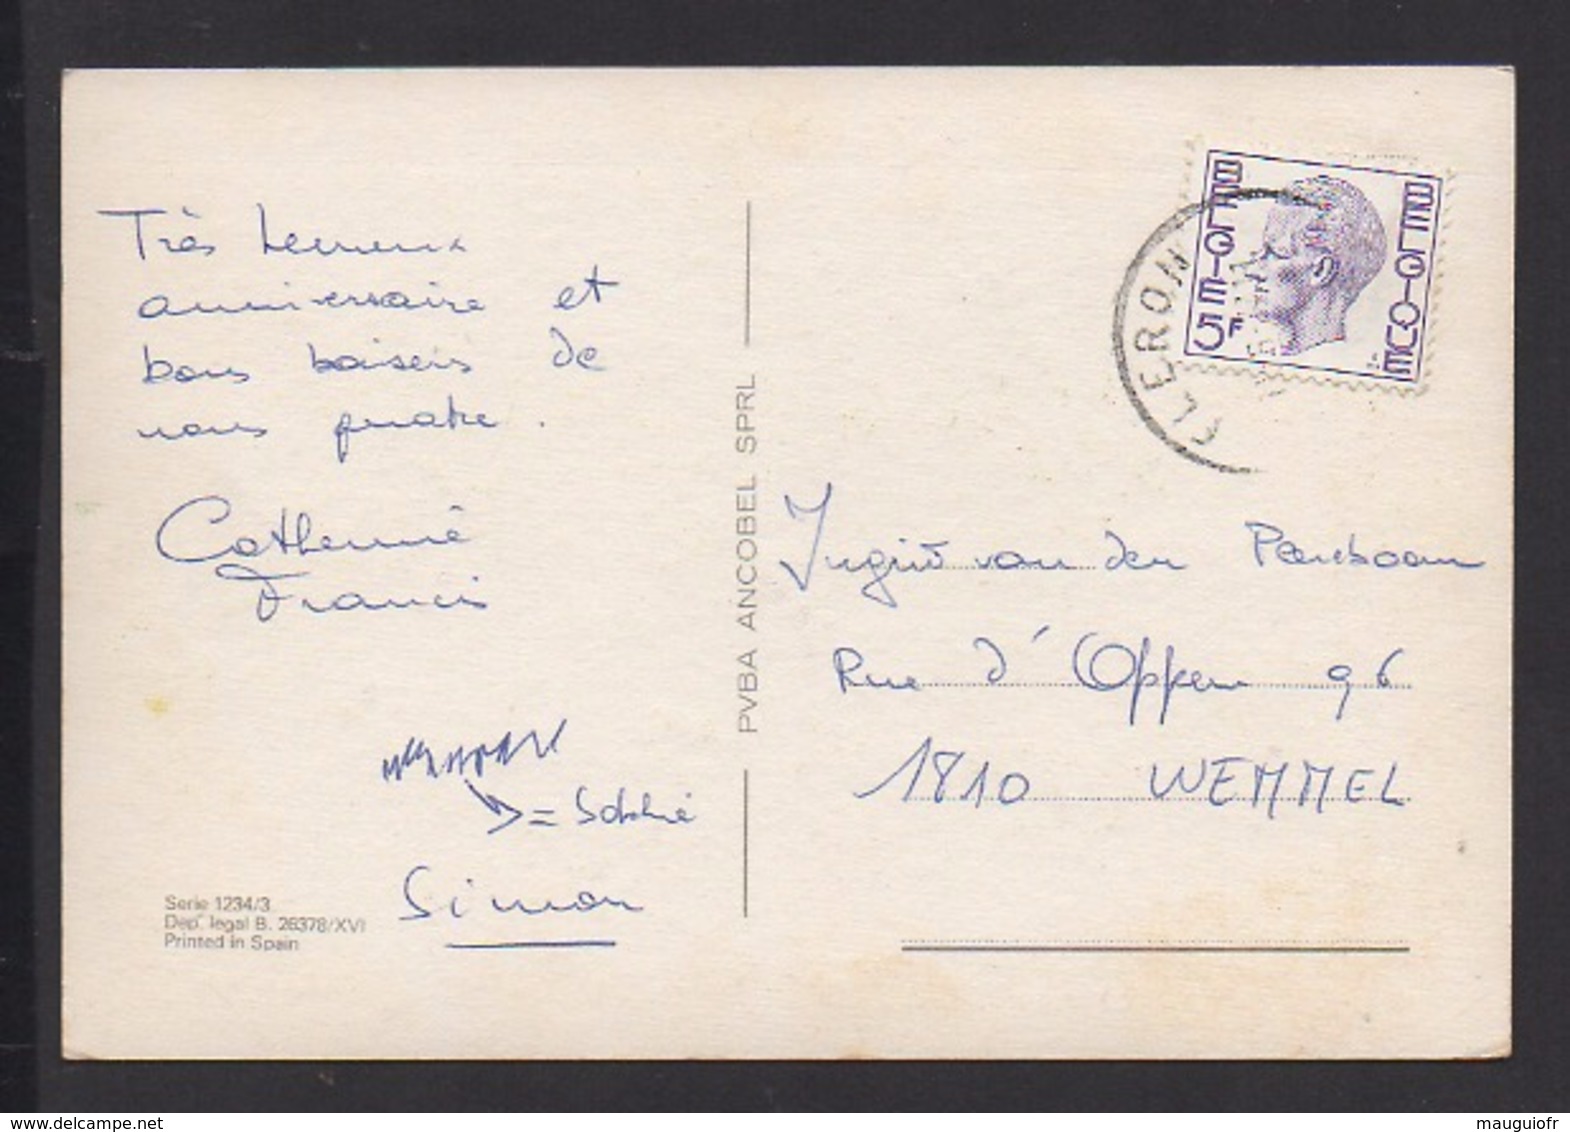 Très heureux
anniversaire et
bons baisers de
nous quatre.
Catherine
Francis
= Sophie
Simon
Serie 1234/3
Dep. legal B. 26378/XVI
Printed in Spain
PVBA ANCOBEL SPRL
BELGIE
5F
BELGIQUE
FLERON
Ingrid van den Peereboom
Rue d'Oppem 96
1810 WEMMEL
mauguiofr